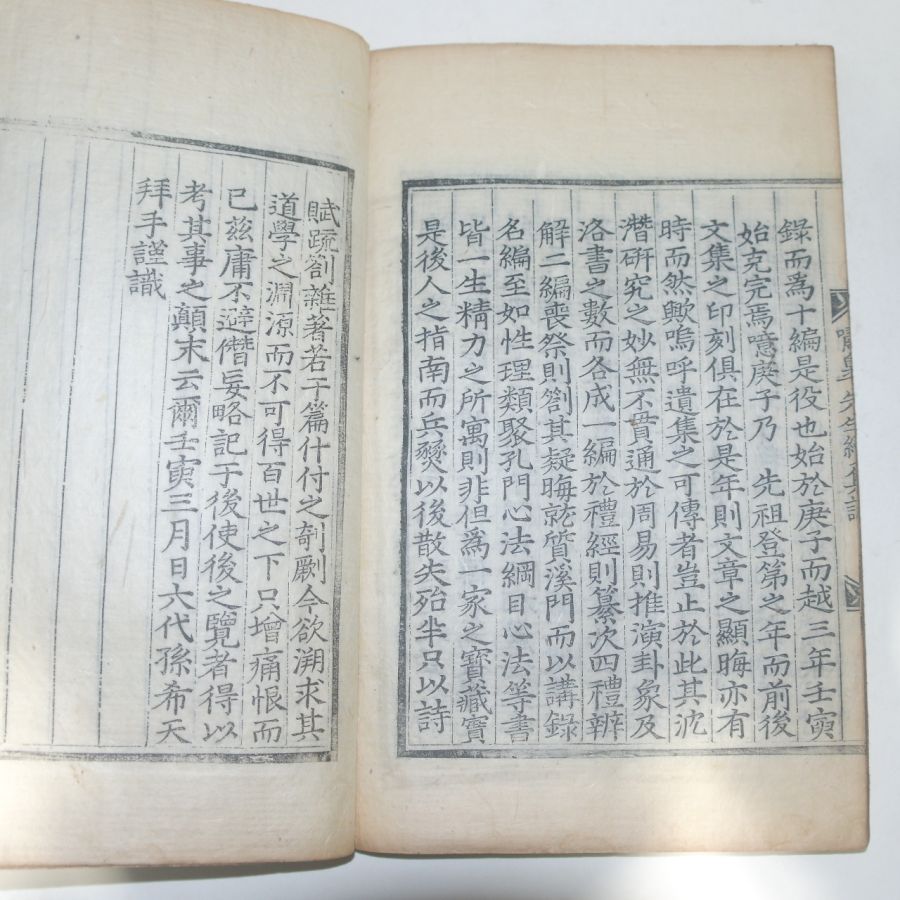 錄而為十編是役也始於庚子而越三年壬寅
始克完焉噫庚子乃 先祖登第之年而前後
文集之印刻俱在於是年則文章之顯晦亦有
時而然歟嗚呼遺集之可傳者豈止於此其沈
潛硏究之妙無不貫通於周易則推演卦象及
洛書之數而各成一編於禮經則纂次四禮辨
解二編喪祭則劄其疑晦就質溪門而以講錄
名編至如性理類聚孔門心法綱目心法等書
皆一生精力之所寓則非但為一家之寶藏寔
是後人之指南而兵燹以後散失殆半只以詩
賦疏劄雜著若干篇什付之剞劂今欲溯求其
道學之淵源而不可得百世之下只增痛恨而
已茲庸不避僭妄略記于後使後之覽者得以
考其事之顛末云爾壬寅三月日六代孫希天
拜手謹識